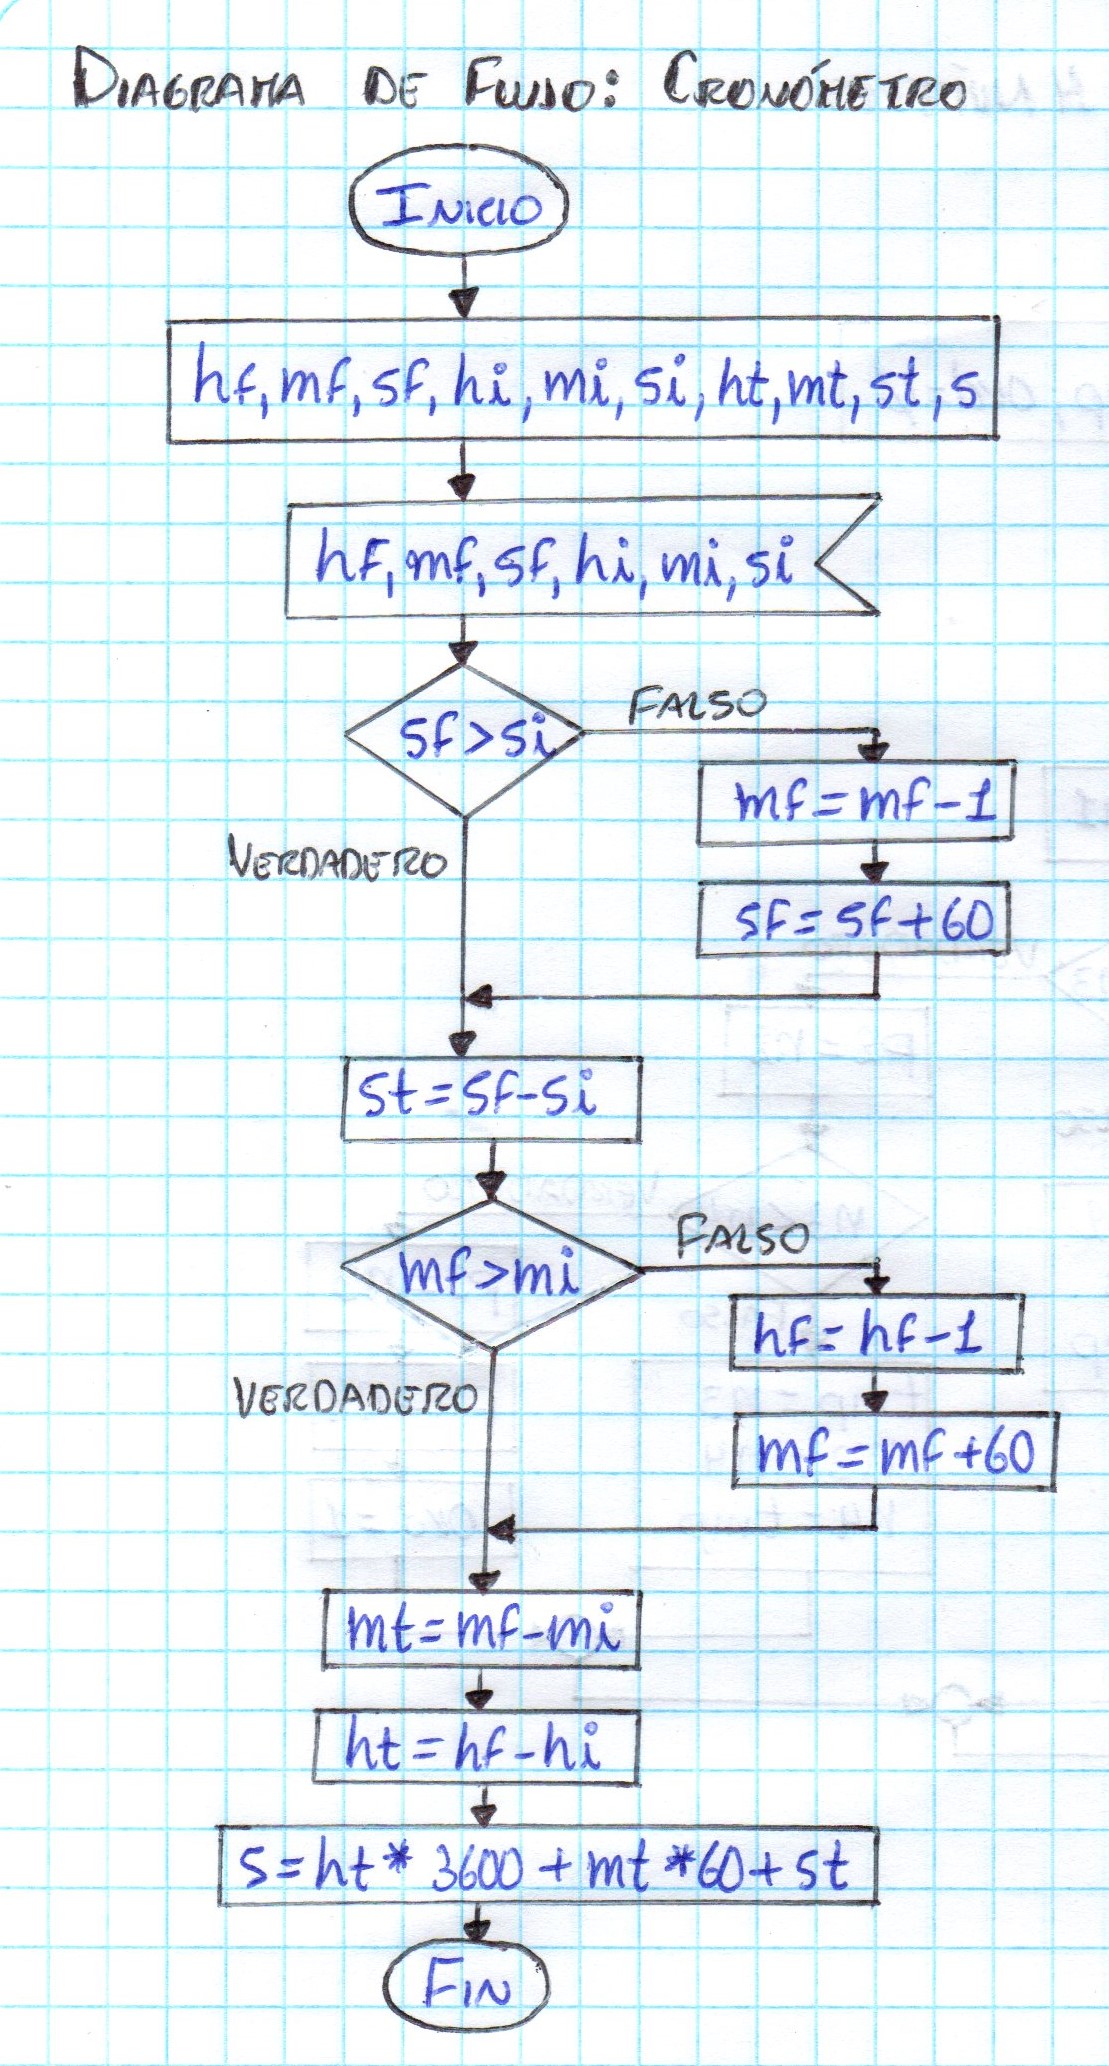 DIAGRAMA DE FLUJO: CRONÓMETRO
INICIO
hf, mf, sf, hi, mi, si, ht, mt, st, s
hf, mf, sf, hi, mi, si
sf>si
FALSO
mf=mf-1
sf=sf+60
VERDADERO
st=sf-si
mf>mi
FALSO
hf=hf-1
mf=mf+60
VERDADERO
mt=mf-mi
ht=hf-hi
s=ht* 3600 + mt *60+ st
FIN